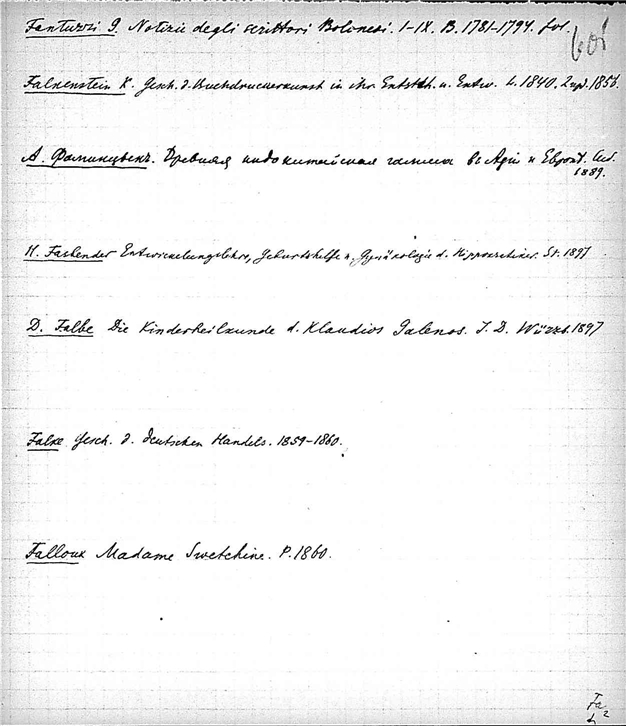 Fantuzzi G. Notizie degli scrittori Bolonesi. I-IX. B. 1781-1794. fol.
601
Falkenstein K. Gesch. d. Buchdruckerkunst in ihr. Entsteh. u. Entw. L. 1840. 2 изд. 1856.
А. Фаминцынъ. Древняя индокитайская гамма въ Азіи и Европѣ. Спб.
1889.
H. Fasbender Entwickelungslehre, Geburtshilfe u. Gynäkologie d. Hippocratiker. St. 1897
D. Falbe Die Kinderheilkunde d. Klaudios Galenos. I. D. Würzb. 1897
Falke Gesch. d. deutschen Handels. 1859-1860.
Falloux Madame Swetchine. P. 1860.
Fa
2